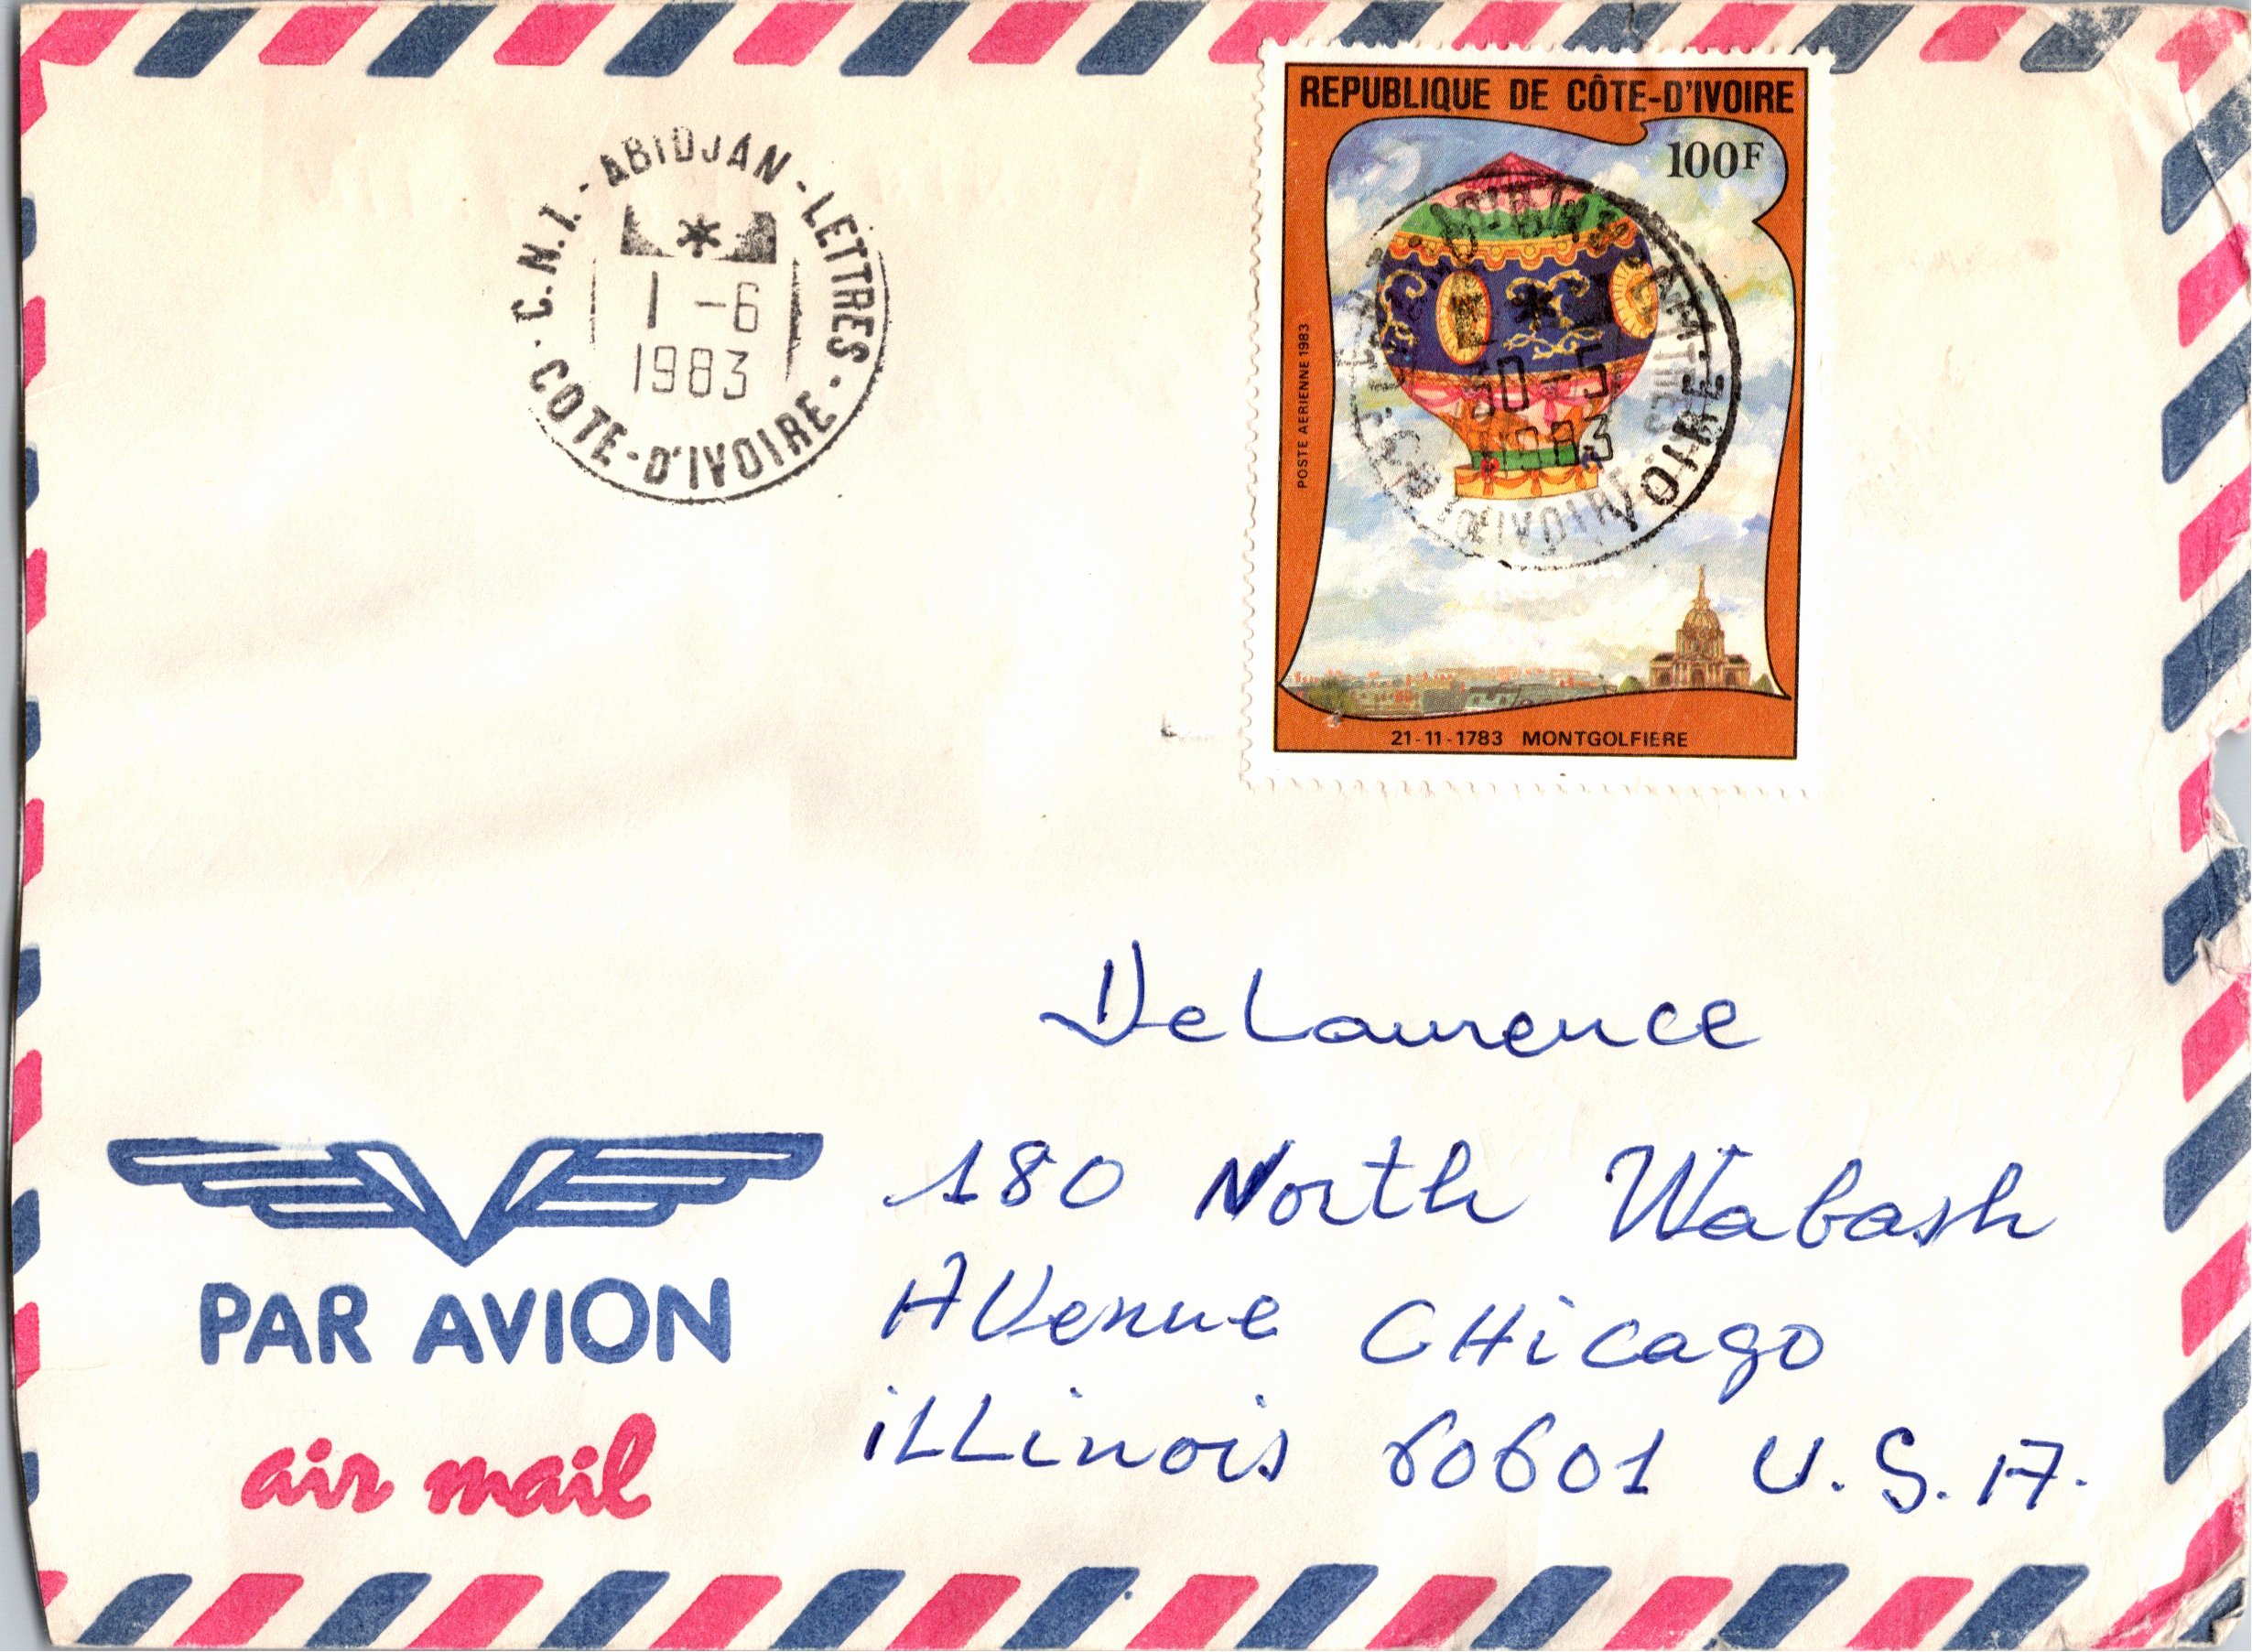 REPUBLIQUE DE CÔTE-D'IVOIRE
100F
C.N.I. - ABIDJAN - LETTRES
1 -6
1983
COTE - D'IVOIRE
30 -5
1983
POSTE AERIENNE 1983
21-11-1783 MONTGOLFIERE
DeLaurence
180 North Wabash
AVenue CHicago
iLLinois 60601 U.S.A.
PAR AVION
air mail